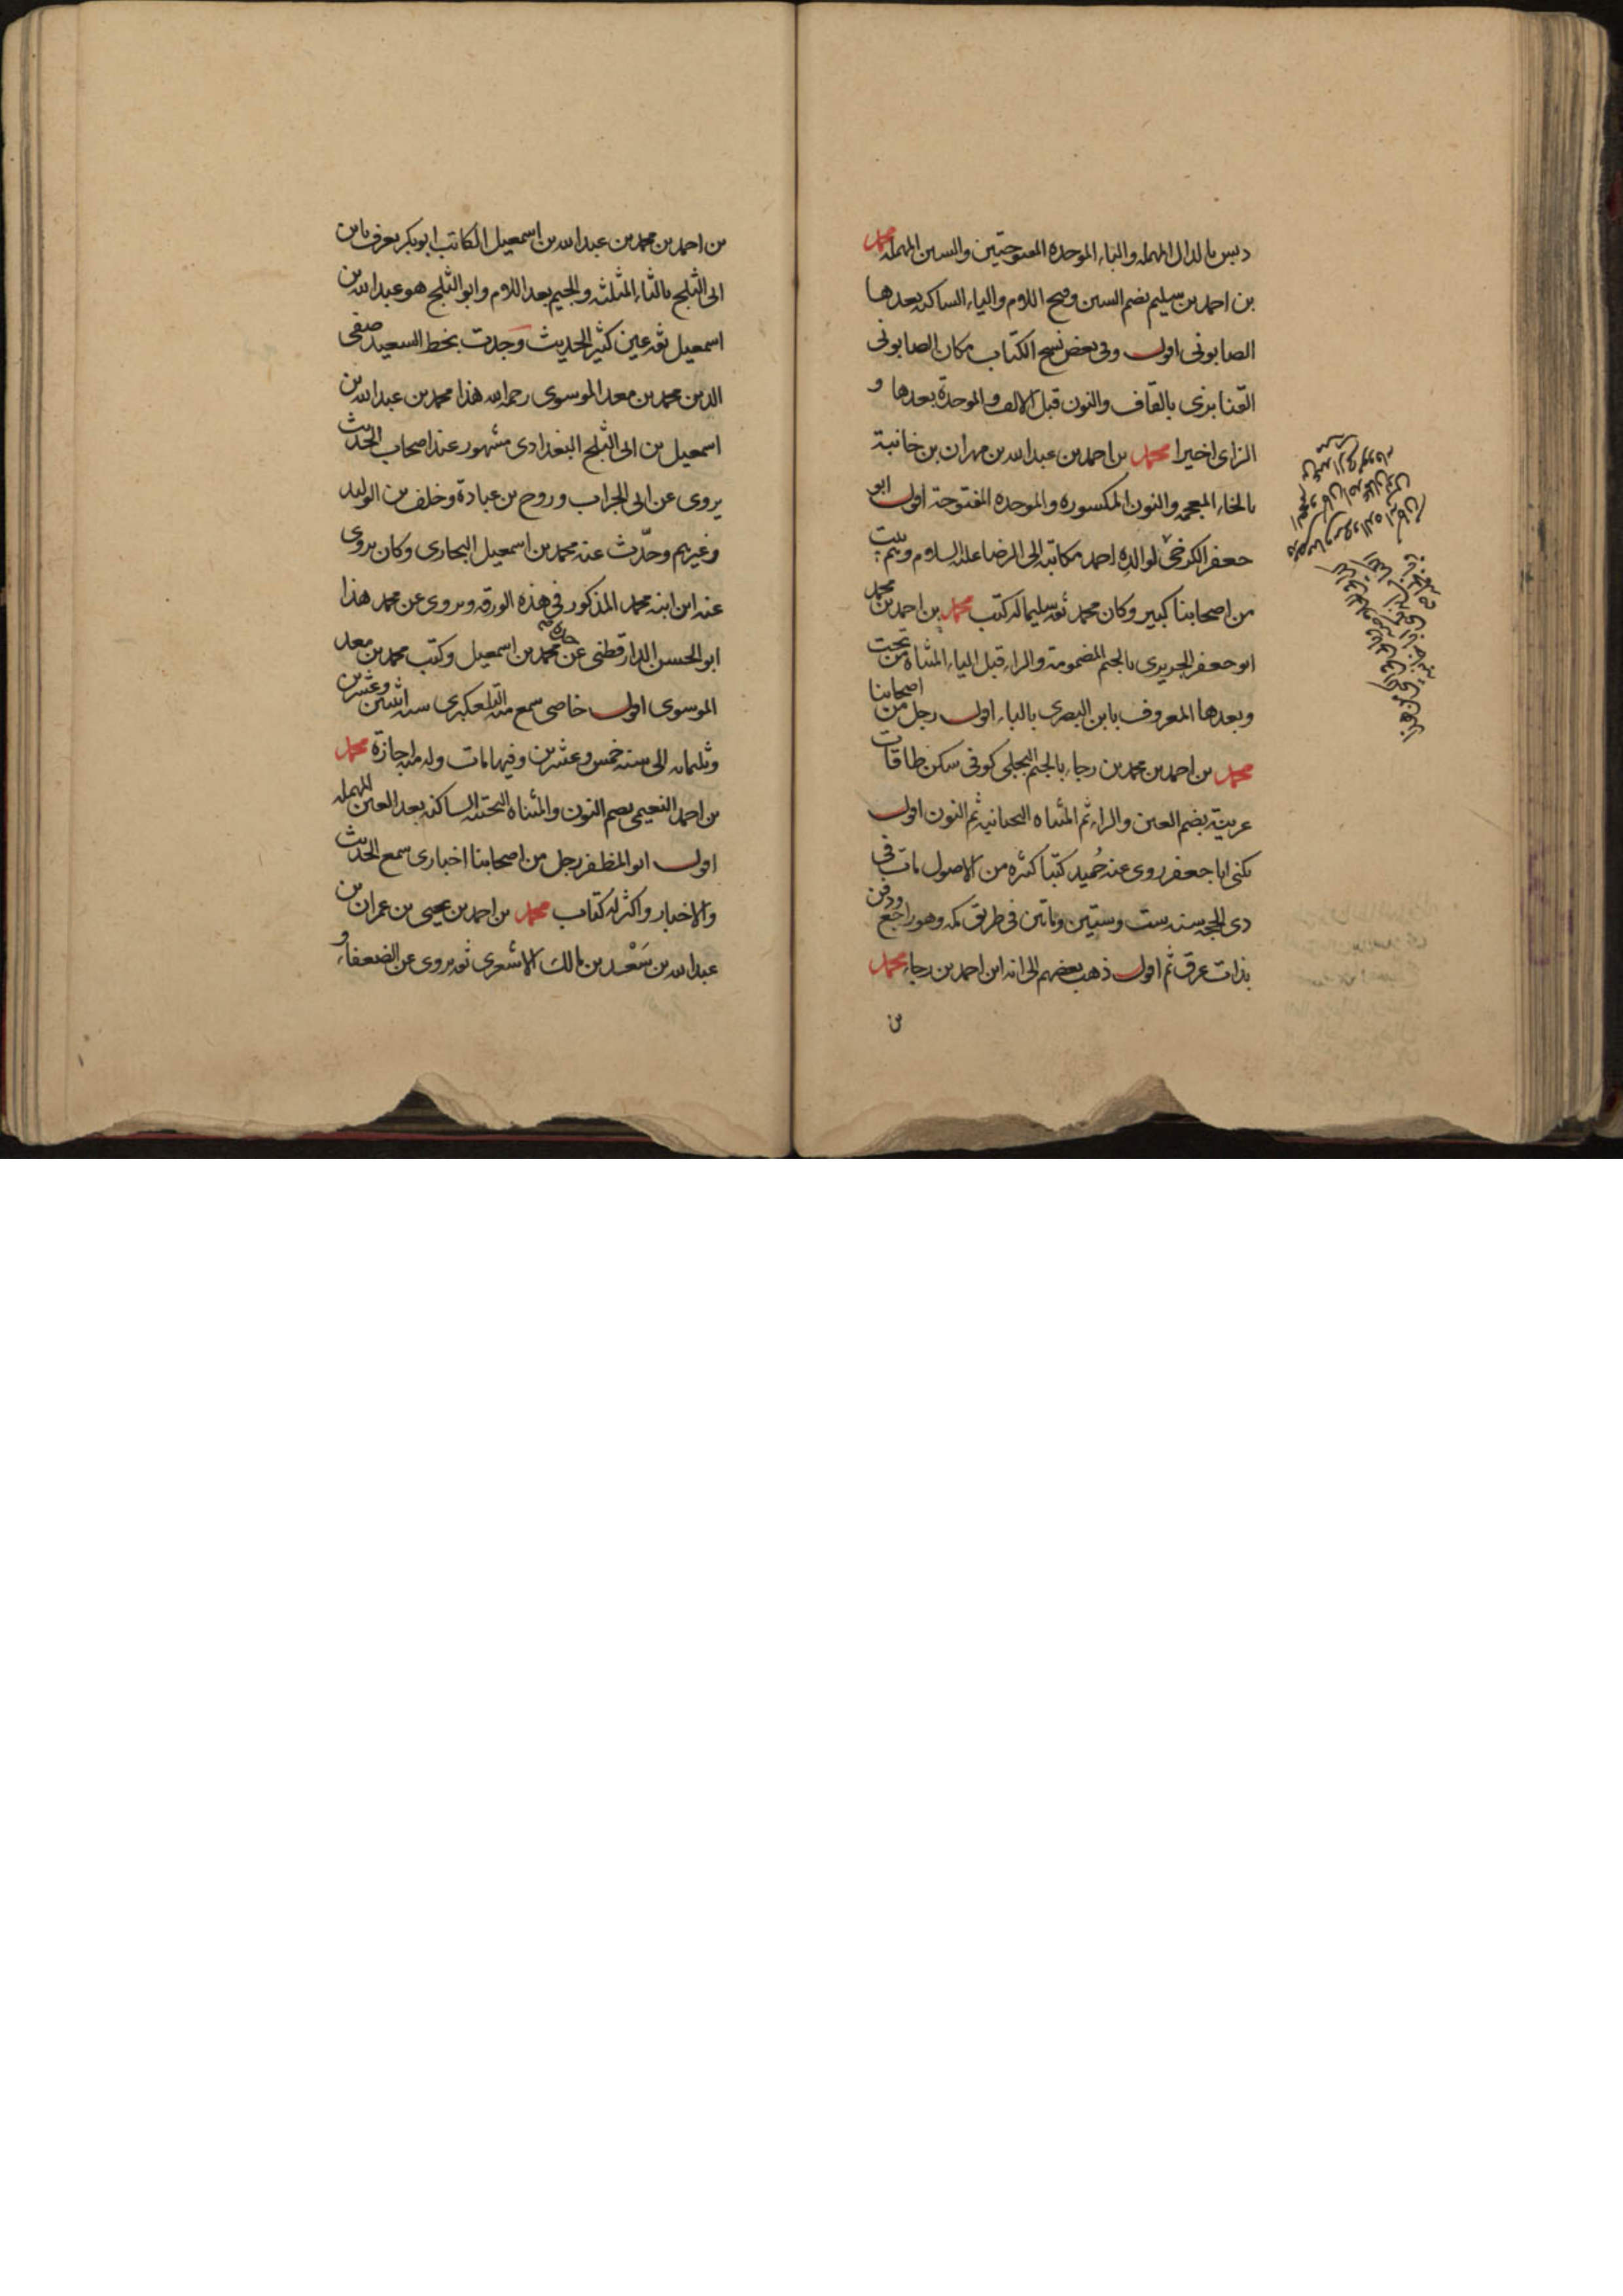 دبس بالدال المهمله والباء الموحده المفتوحتين والسين المهمله محمد
بن احمد بن سليم بضم السين وفتح اللام والياء الساكنه بعدها
الصابونی اقول وفی بعض نسخ الكتاب مكان الصابونی
القنابزی بالقاف والنون قبل الالف والموحدة بعدها و
الزای اخيرا محمد بن احمد بن عبدالله بن مهران بن خانبة
بالخاء المعجمه والنون المكسوره والموحده المفتوحة اقول ابو
جعفر الكرخی لوالده احمد مكاتبة الى الرضا عليه السلام وبيتهم بيت
من اصحابنا كبير وكان محمد ثقه سليما له كتب محمد بن احمد بن محمد
ابو جعفر الجريری بالجيم المضمومة والراء قبل الياء المثناه من تحت
وبعدها المعروف بابن البصری بالباء اقول رجل من اصحابنا
محمد بن احمد بن محمد بن رجاء بالجيم البجلی كوفی سكن طاقات
عرينة بضم العين والراء ثم المثناه التحتانيه ثم النون اقول
يكنى ابا جعفر روى عنه حُميد كتبا كثيره من الاصول مات فی
ذی الحجه سنه ست وستين وماتين فی طريق مكه وهو راجع ودفن
بذات عرق ثم اقول ذهب بعضهم الى انه ابن احمد بن رجاء محمد
بن
بن احمد بن محمد بن عبدالله بن اسمعيل الكاتب ابو بكر يعرف بابن
ابی الثلج بالثاء المثلثه والجيم بعد اللام وابو الثلج هو عبدالله بن
اسمعيل ثقه عين كثير الحديث وجدت بخط السعيد صفی
الدين محمد بن معد الموسوی رحمه الله هذا محمد بن عبدالله بن
اسمعيل بن ابی الثلج البغدادی مشهور عند اصحاب الحديث
يروی عن ابی الجراب وروح بن عبادة وخلف بن الوليد
وغيرهم وحدّث عنه محمد بن اسمعيل البخاری وكان يروی
عنه ابن ابنه محمد المذكور فی هذه الورقه ويروی عن محمد هذا
ابو الحسن الدارقطنی عن جده محمد بن اسمعيل وكتب محمد بن معد
الموسوی اقول خاصی سمع منه التلعكبری سنه اثنتين وعشرين
وثلثمائه الى سنه خمس وعشرين وفيها مات وله منه اجازة محمد
بن احمد النعيمی بضم النون والمثناه التحتيه الساكنه بعد العين المهمله
اقول ابو المظفر رجل من اصحابنا اخباری سمع الحديث
والاخبار واكثر له كتاب محمد بن احمد بن يحيى بن عمران بن
عبدالله بن سَعْد بن مالك الاشعری ثقه يروی عن الضعفاء و